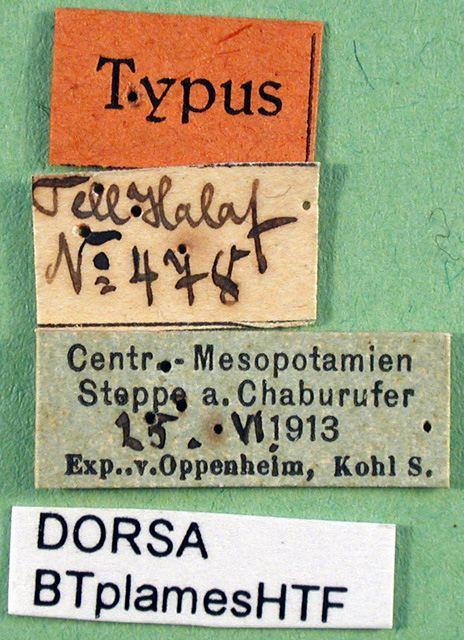 Typus
Tell Halaf
No 478
Centr.-Mesopotamien
Steppe a. Chaburufer
25. VI 1913
Exp. v. Oppenheim, Kohl S.
DORSA
BTplamesHTF